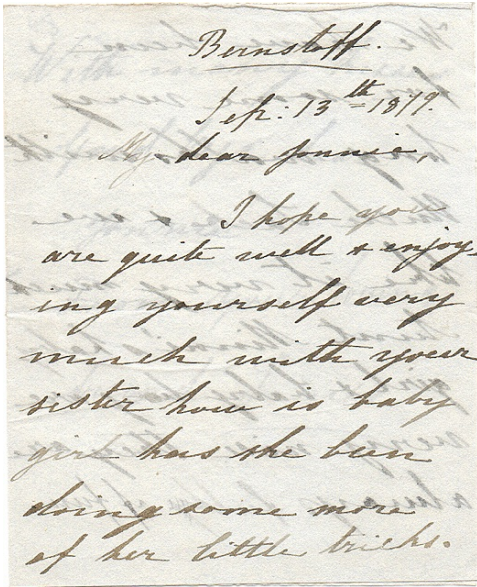 Bernstoff.
Sep: 13th 1879
My dear Jonnie,
I hope you
are quite well & enjoy-
ing yourself very
much with your
sister how is baby
girl has she been
doing some more
of her little tricks.